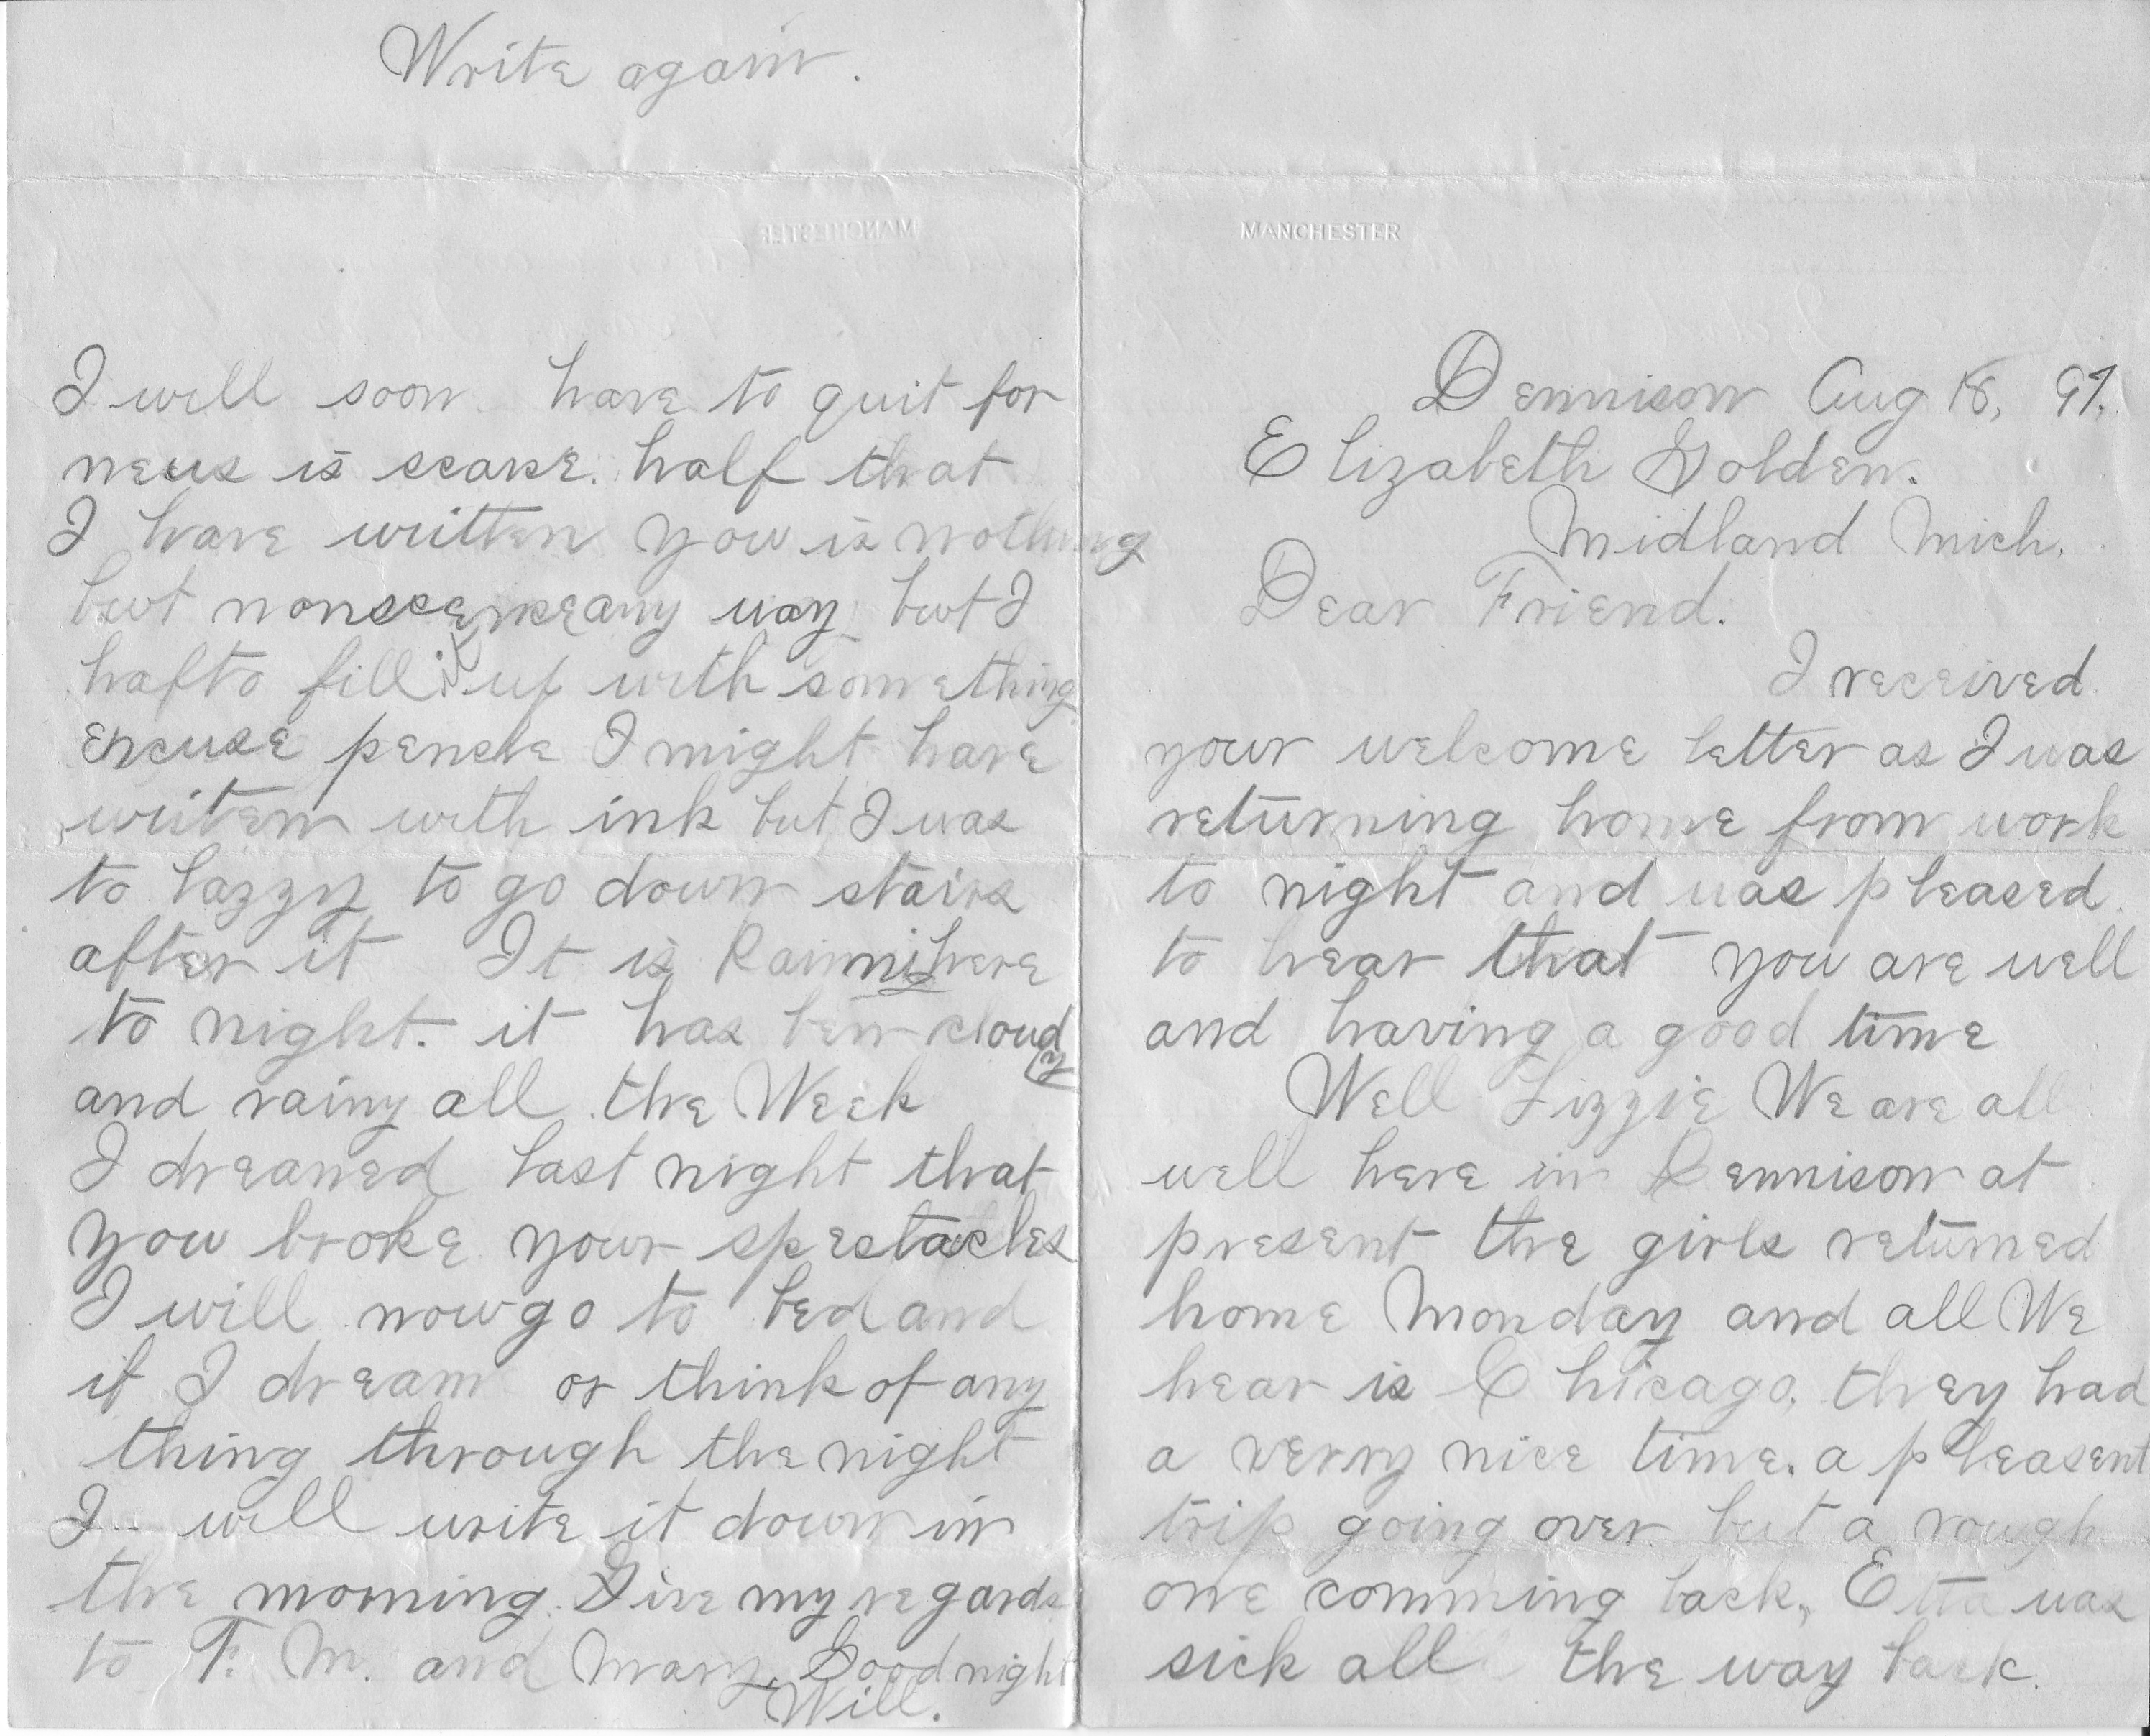 MANCHESTER
Dennison Aug 18, 97.
Elizabeth Golden.
Midland Mich.
Dear Friend.
I received
your welcome letter as I was
returning home from work
to night and was pleased
to hear that you are well
and having a good time
Well Lizzie We are all
well here in Dennison at
present the girls returned
home Monday and all We
hear is Chicago. they had
a verry nice time. a pleasent
trip going over but a rough
one comming back, Etta was
sick all the way back.
Write again.
I will soon have to quit for
news is scarse. half that
I have written you is nothing
but nonscense any way but I
hafto fill it up with something
excuse pencle I might have
writen with ink but I was
to lazzy to go down stairs
after it It is Rainnig here
to night. it has ben cloudy
and rainy all the Week
I dreaned last night that
you broke your spectacles
I will now go to bed and
if I dream or think of any
thing through the night
I will write it down in
the morning. Give my regards
to F. M. and Mary. Good night
Will.